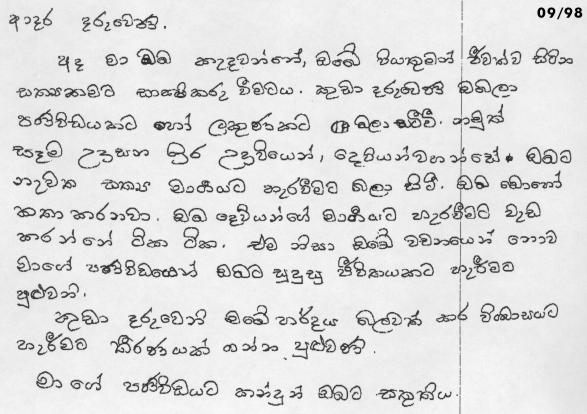 09/98
ආදර දරුවෙණි.
අද මා ඔබ කැඳවන්නේ, ඔබේ පියතුමන් ජීවත්ව සිටින
සත්‍යකමට සාක්ෂිකරු වීමටය. කුඩා දරුවෙණි ඔබලා
පණිවිඩයකට හෝ ලකුණකට බලා සිටී. නමුත්
සෑම උදෑසන හිරු උදාවියෙන්, දෙවියන්වහන්සේ ඔබට
නැවත සත්‍ය මාර්ගයට හැරවීමට බලා සිටී. ඔබ බොහෝ
කතා කරනවා. ඔබ දෙවියන්ගේ මාර්ගයට හැරවීමට වැඩ
කරන්නේ ටික ටික. එම නිසා ඔබේ වචනයෙන් නොව
මාගේ පණිවිඩයෙන් ඔබට සුදුසු ජීවිතයකට හැරීමට
පුළුවනි.
කුඩා දරුවෙනි ඔබේ හර්දය බලවත් කර විශ්වාසයට
හැරීමට තීරණයක් ගන්න පුළුවණි.
මාගේ පණිවිඩයට කන්දුන් ඔබට ස්තුතිය.